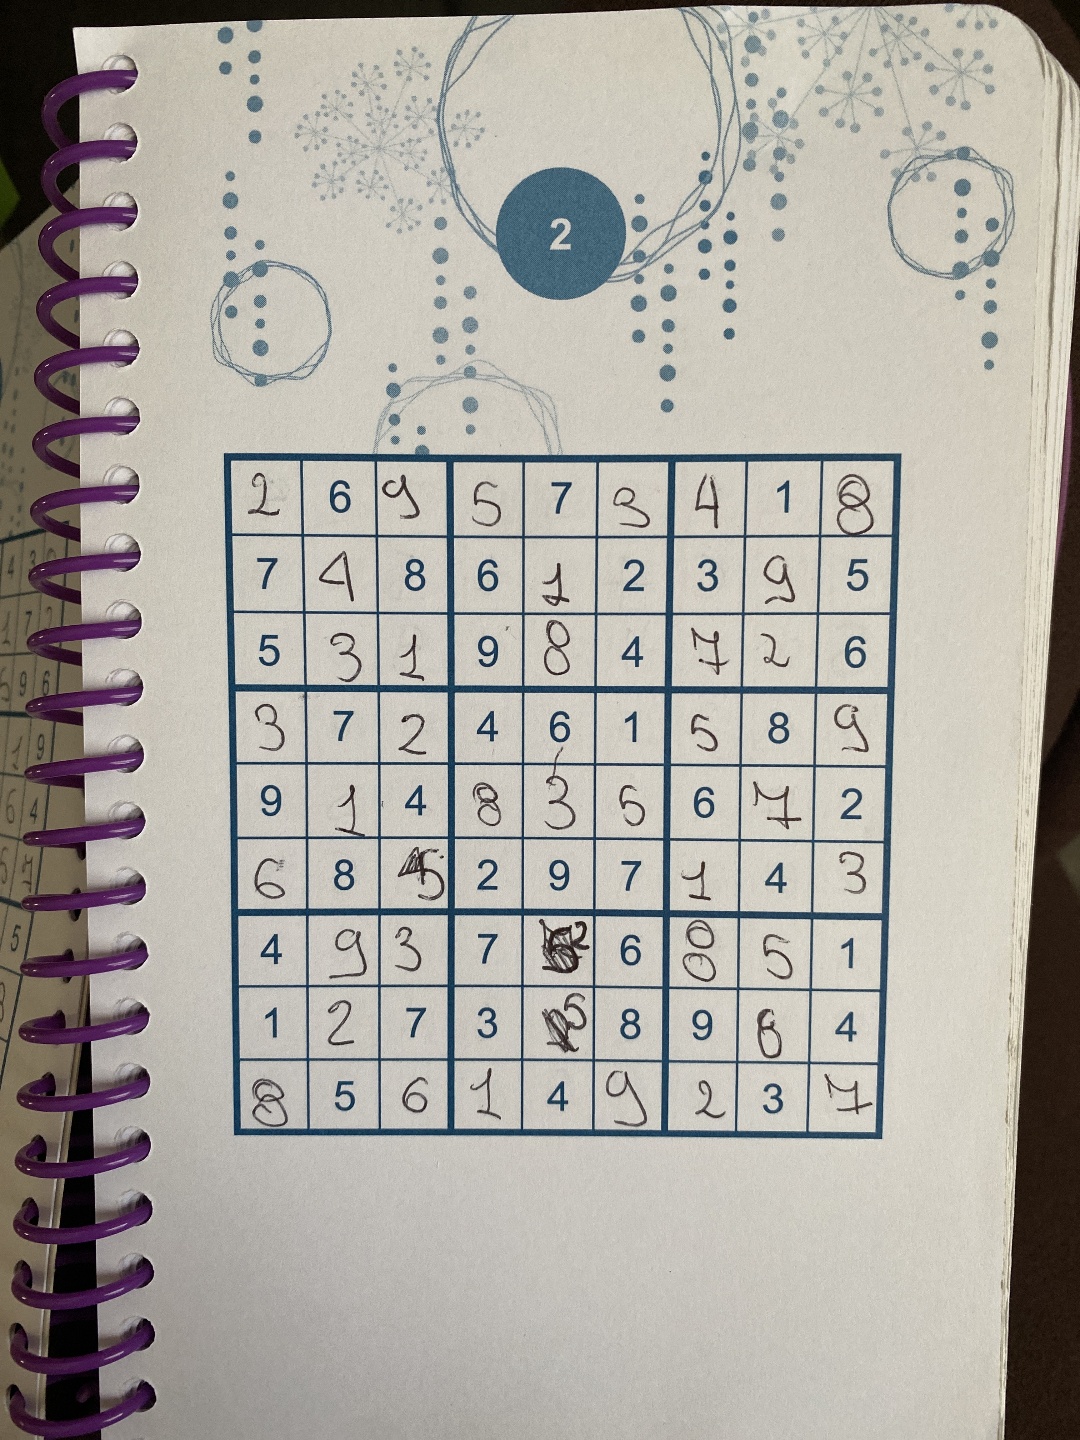 2
2 6 9 5 7 3 4 1 8
7 4 8 6 1 2 3 9 5
5 3 1 9 8 4 7 2 6
3 7 2 4 6 1 5 8 9
9 1 4 8 3 5 6 7 2
6 8 5 2 9 7 1 4 3
4 9 3 7 2 6 8 5 1
1 2 7 3 5 8 9 6 4
8 5 6 1 4 9 2 3 7